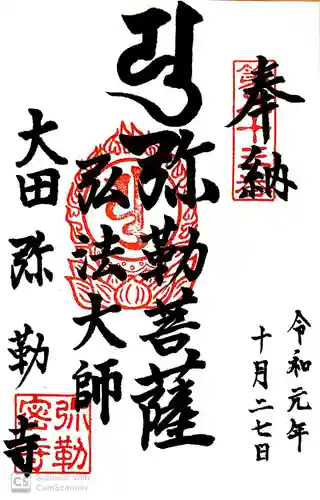 奉納
令和元年
十月二七日
弥勒菩薩
弘法大師
大田弥勒寺
弥勒
密寺
CS Scanned with
CamScanner